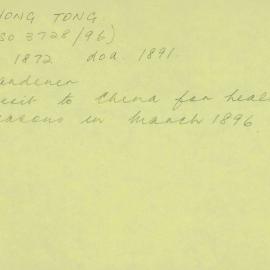 HONG TONG
SO 3728/96)
1872 doa. 1891.
ardener
visit to China for heal
easons in March 1896